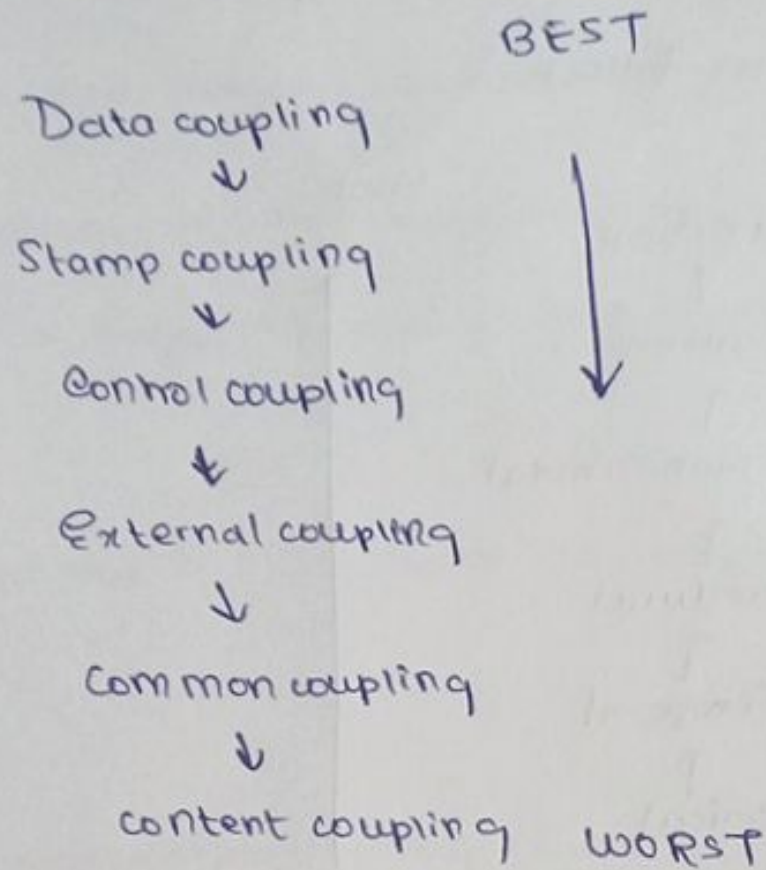 BEST
Data coupling
↓
Stamp coupling
↓
Control coupling
↓
External coupling
↓
Common coupling
↓
content coupling WORST